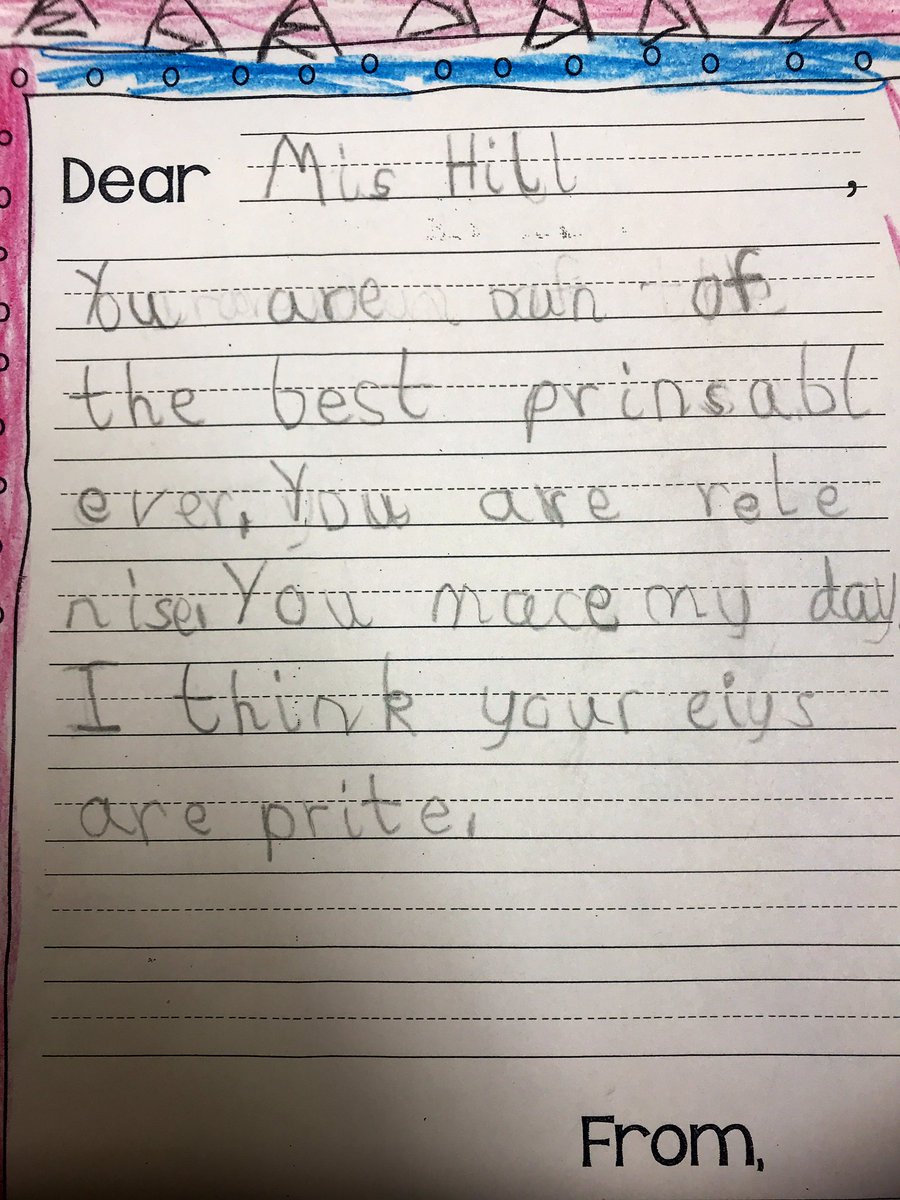 Dear Mis Hill,
You are oun of
the best prinsabl
ever, You are rele
nise, You mace my day.
I think your eiys
are prite.
From,